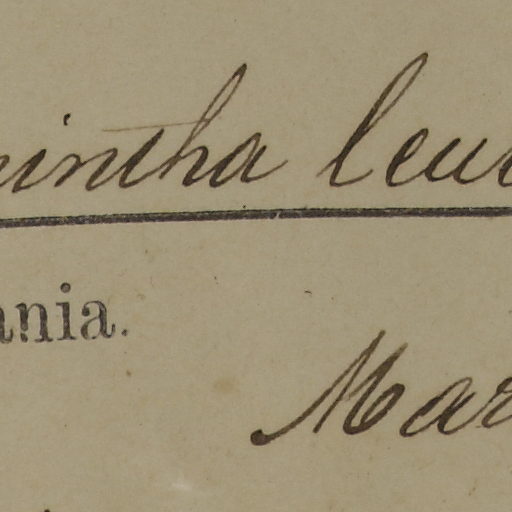 intha leu
ania.
Mar